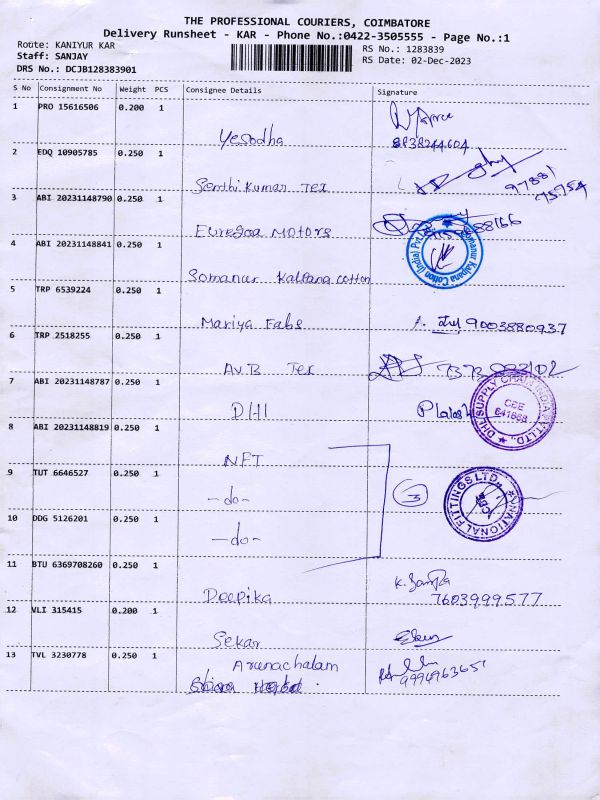 THE PROFESSIONAL COURIERS, COIMBATORE
Delivery Runsheet - KAR - Phone No.:0422-3505555 - Page No.:1
Route: KANIYUR KAR
Staff: SANJAY
DRS No.: DCJB128383901
RS No.: 1283839
RS Date: 02-Dec-2023
S No Consignment No Weight PCS Consignee Details Signature
1 PRO 15616506 0.200 1
Yesodha
8838244604
2 EDQ 10905785 0.250 1
Senthi Kumar Tex
97881
75754
3 ABI 20231148790 0.250 1
Motors
4 ABI 20231148841 0.250 1
Somanur Kalpana cotton
Somanur Kalpana Cotton (India) Pvt.
5 TRP 6539224 0.250 1
Mariya Fabs
A. 9003880937
6 TRP 2518255 0.250 1
Av.B Tex
7 ABI 20231148787 0.250 1
DHL
DHL SUPPLY CHAIN INDIA PVT. LTD.,
CBE
641668
8 ABI 20231148819 0.250 1
NFT
9 TUT 6646527 0.250 1
-do-
3
NATIONAL FITTINGS LTD.,
CBE
10 DDG 5126201 0.250 1
-do-
11 BTU 6369708260 0.250 1
Deepika
K.
7603999577
12 VLI 315415 0.200 1
Sekar
13 TVL 3230778 0.250 1
Arunachalam
9994963651